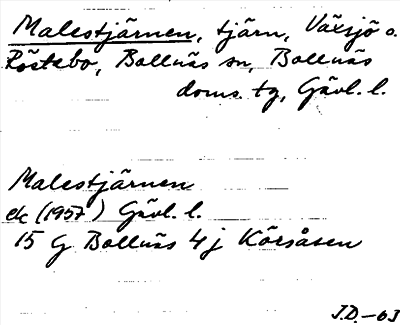 Malestjärnen, tjärn, Växsjö o.
Röstebo, Bollnäs sn, Bollnäs
doms. tg, Gävl. l.
Malestjärnen
ek (1957) Gävl. l.
15 G Bollnäs 4j Körsåsen
J.D. -63